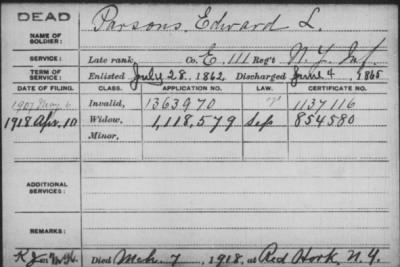 DEAD
Parsons, Edward L.
NAME OF SOLDIER:
SERVICE: Late rank, Co. E, 111 Reg't N.Y. Inf.
TERM OF SERVICE: Enlisted July 28, 1862, Discharged June 4, 1865
DATE OF FILING. CLASS. APPLICATION NO. LAW. CERTIFICATE NO.
1907 May 6 Invalid, 1363970 1137116
1918 Apr. 10 Widow, 1,118,579 854580
Minor,
ADDITIONAL SERVICES:
REMARKS:
Died Mch. 7, 1918, at Red Hook, N.Y.